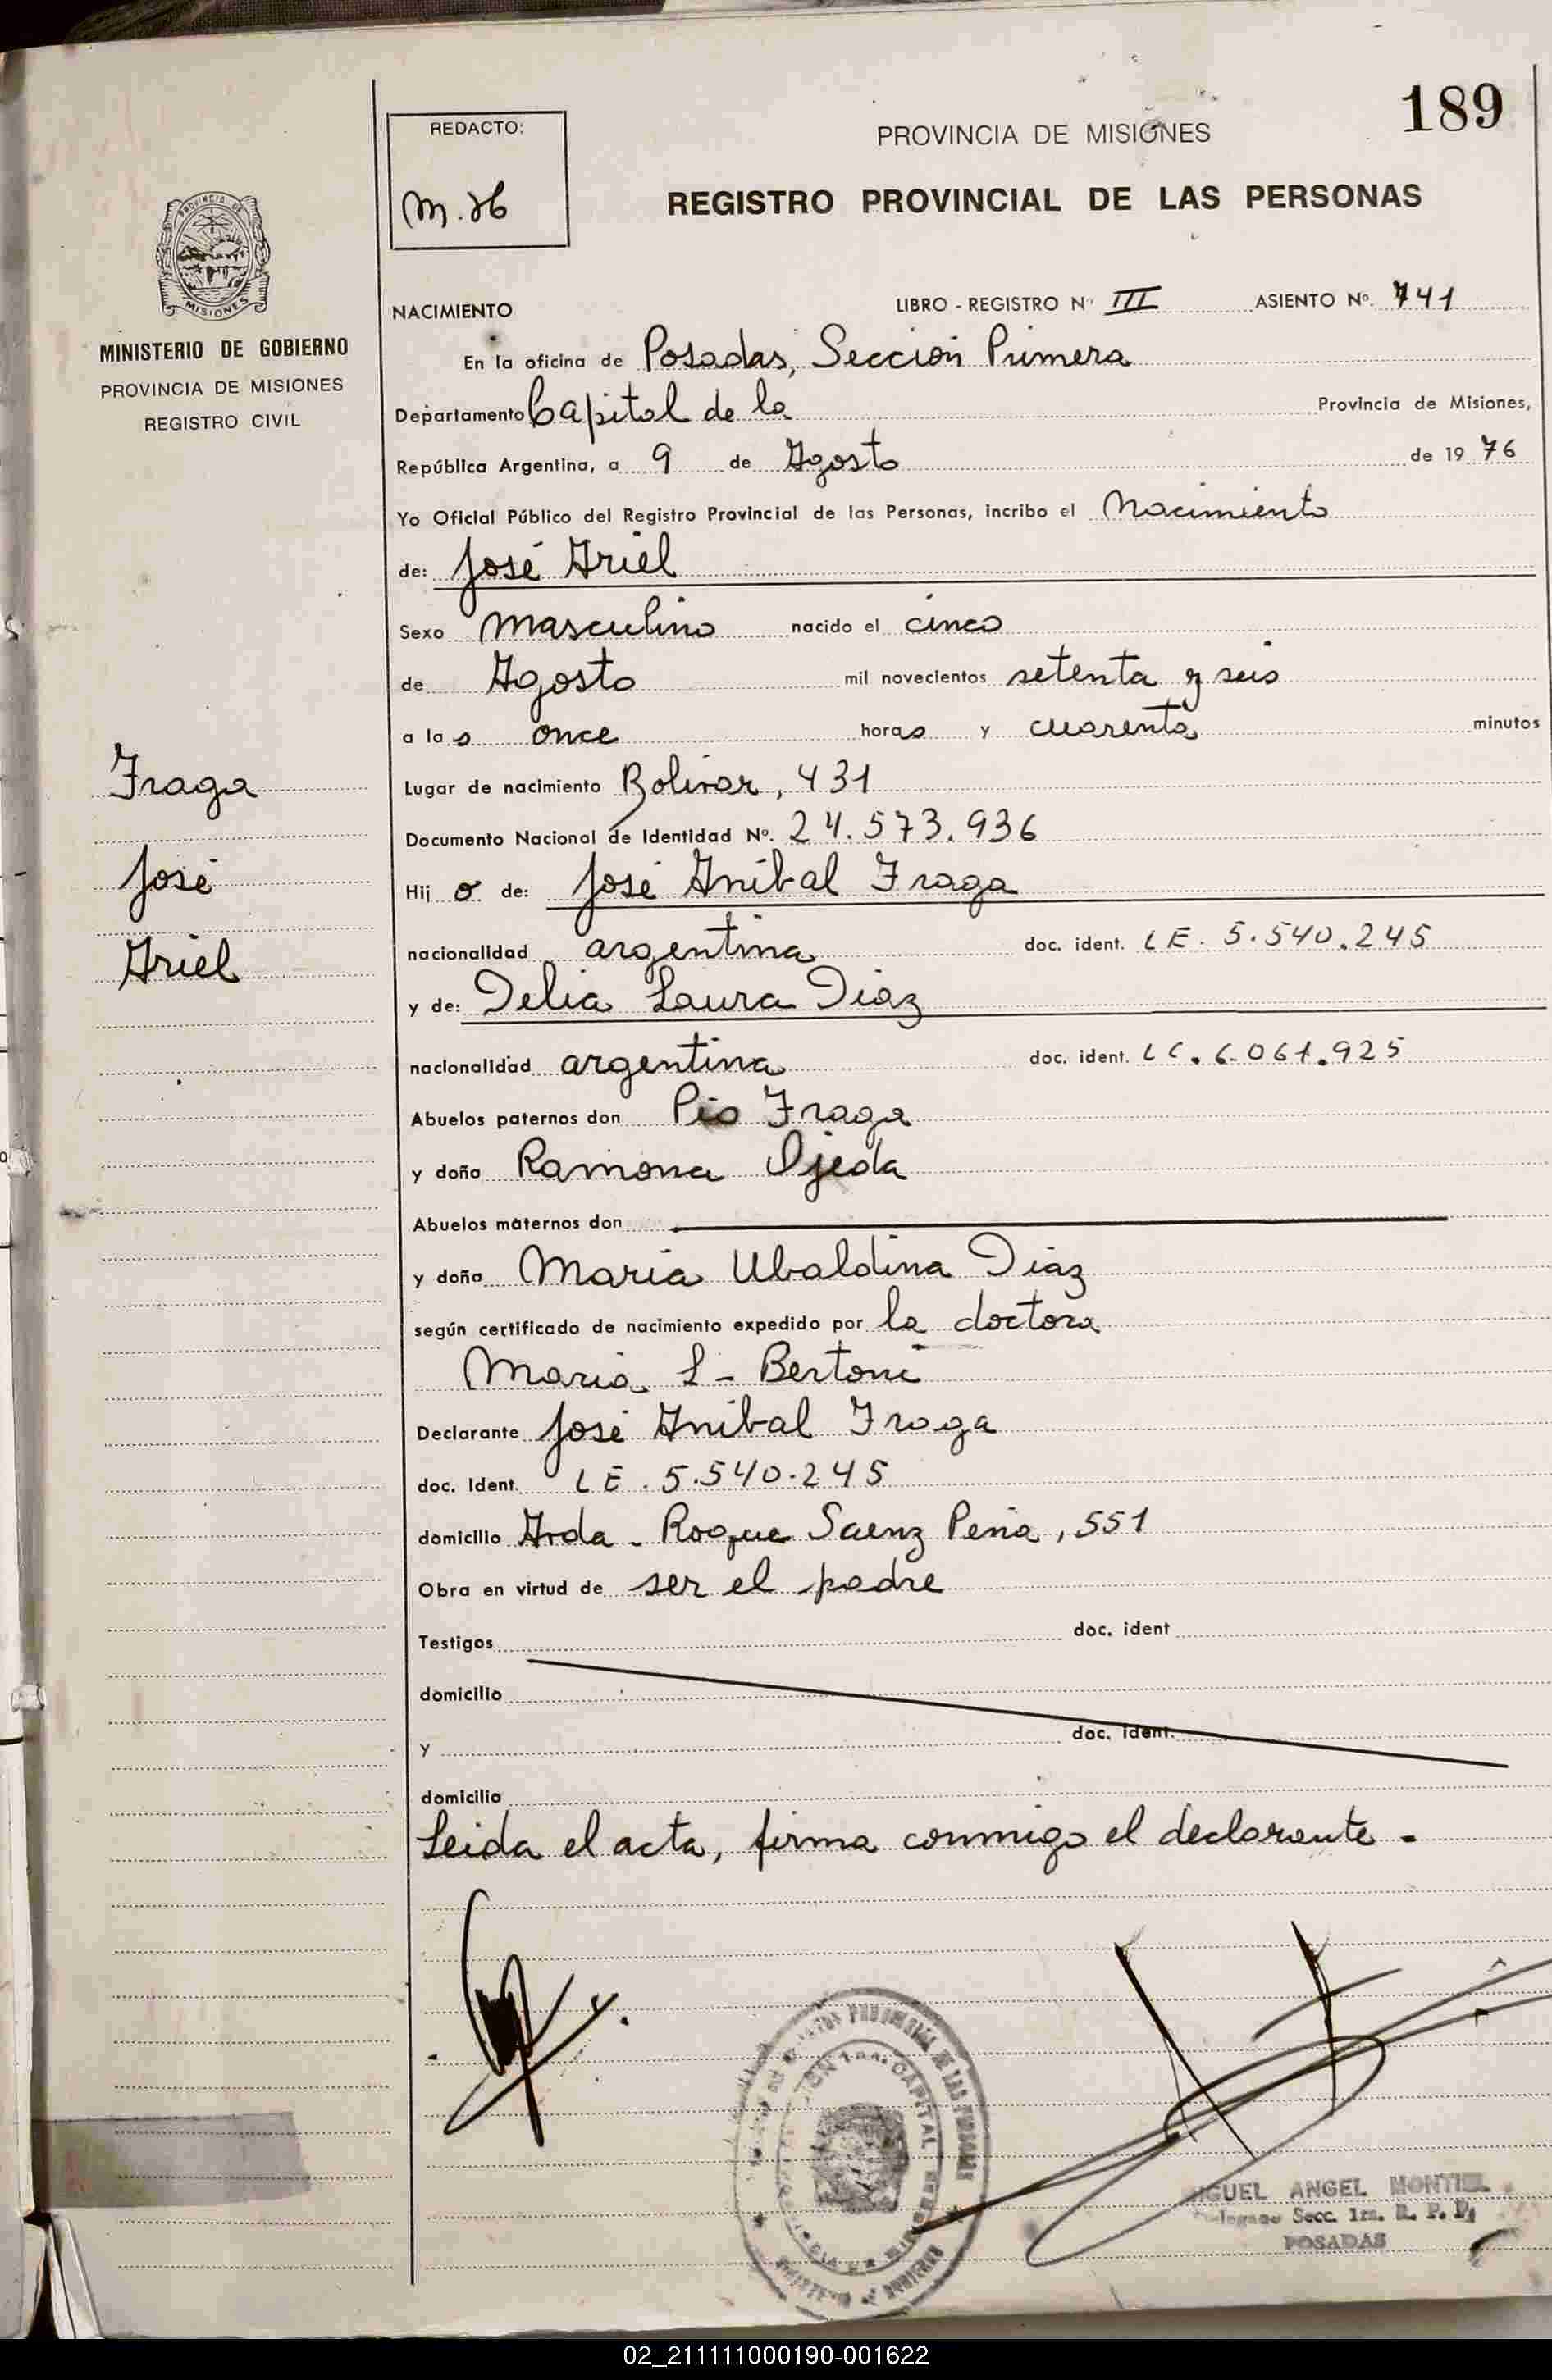 189
REDACTO:
PROVINCIA DE MISIONES
REGISTRO PROVINCIAL DE LAS PERSONAS
PROVINCIA DE
MISIONES
MINISTERIO DE GOBIERNO
PROVINCIA DE MISIONES
REGISTRO CIVIL
NACIMIENTO LIBRO - REGISTRO Nº III ASIENTO Nº. 741
En la oficina de Posadas, Sección Primera
Departamento Capital de la Provincia de Misiones,
República Argentina, a 9 de Agosto de 1976
Yo Oficial Público del Registro Provincial de las Personas, incribo el Nacimiento
de: José Ariel
Sexo Masculino nacido el cinco
de Agosto mil novecientos setenta y seis
a las once horas y cuarenta minutos
Fraga
José
Ariel
Lugar de nacimiento Bolivar, 431
Documento Nacional de Identidad Nº. 24.573.936
Hijo de: José Aníbal Fraga
nacionalidad argentina doc. ident. LE. 5.540.245
y de: Delia Laura Diaz
nacionalidad argentina doc. ident. LC. 6.061.925
Abuelos paternos don Pio Fraga
y doña Ramona Ojeda
Abuelos maternos don
y doña Maria Ubaldina Diaz
según certificado de nacimiento expedido por la doctora
Maria L - Bertoni
Declarante José Aníbal Fraga
doc. Ident. LE. 5.540.245
domicilio Avda. Roque Saenz Peña, 551
Obra en virtud de ser el padre
Testigos doc. ident
domicilio
y doc. ident.
domicilio
Leida el acta, firma conmigo el declarante.
CAPITAL
MIGUEL ANGEL MONTIEL
Secc. 1ra. R. P. P.
POSADAS
02_211111000190-001622